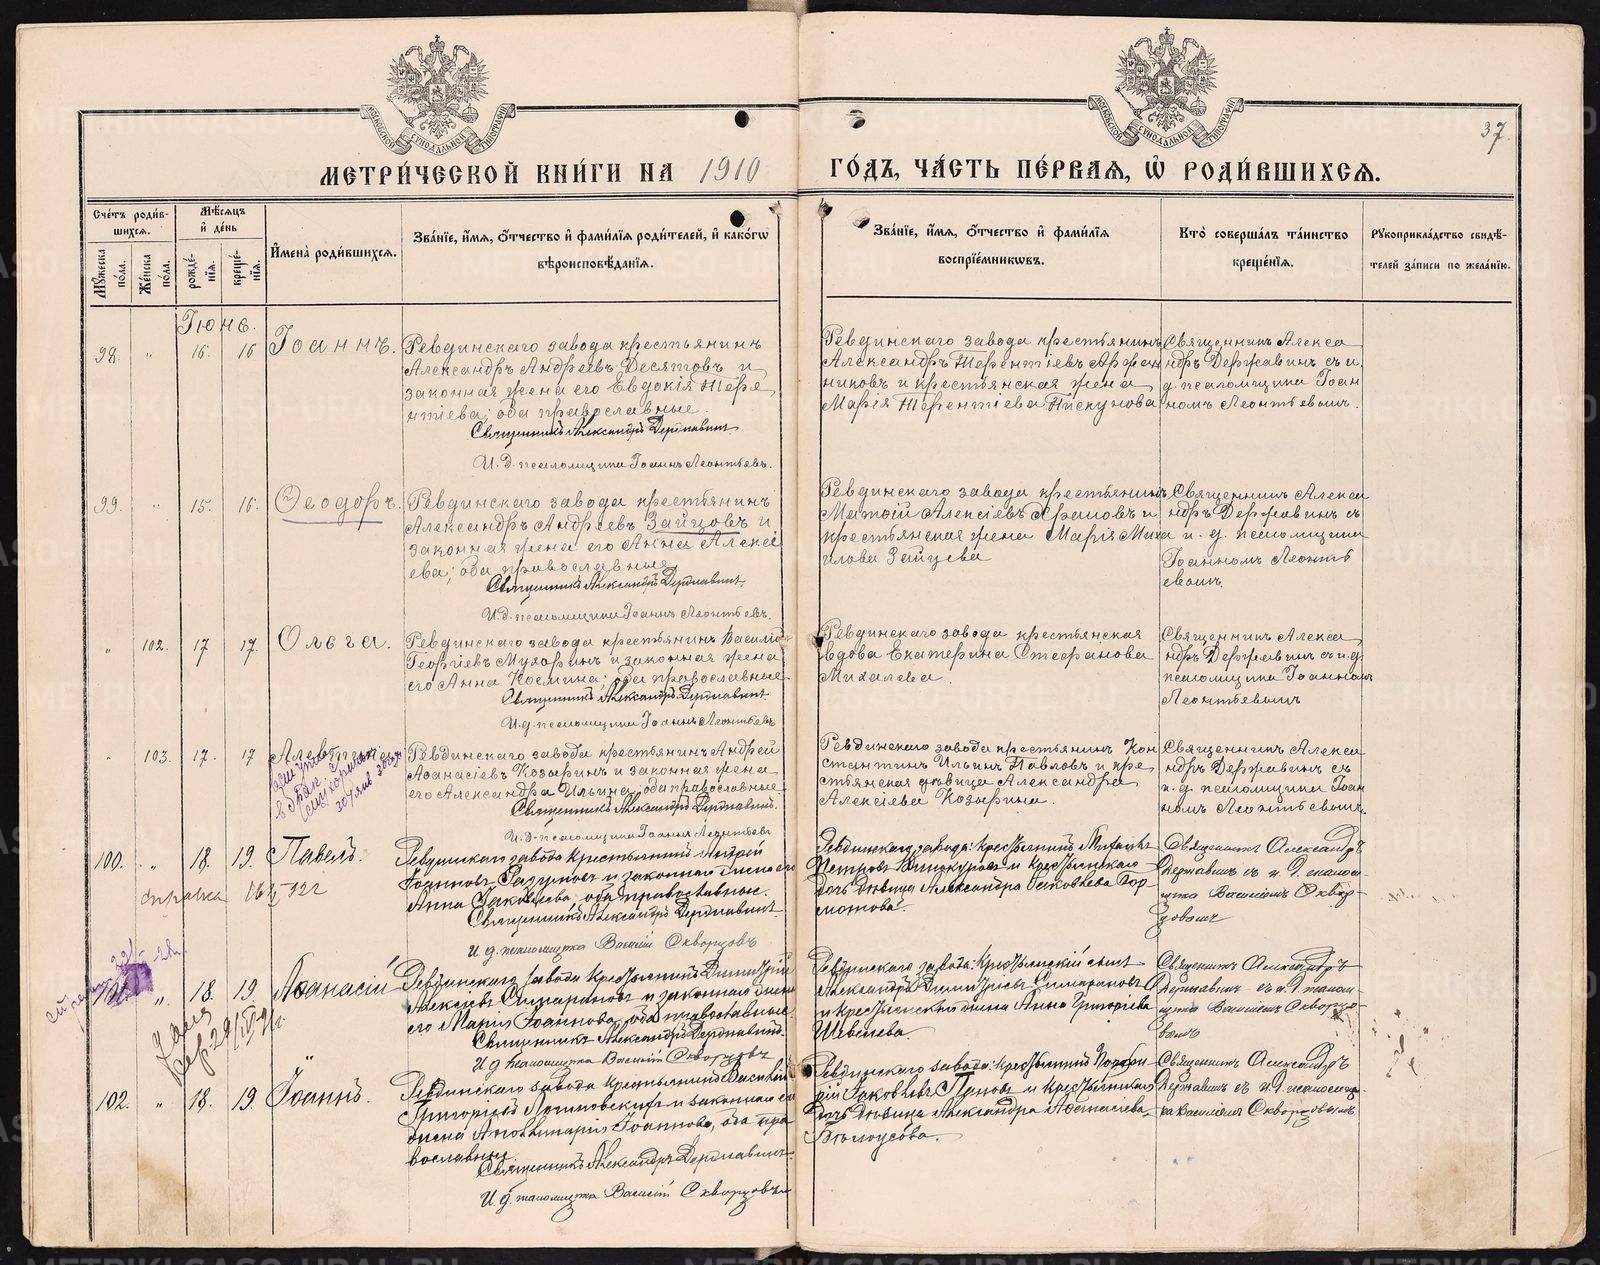 МОСКОВСКОЙ СѴНОДАЛЬНОЙ ТИПОГРАФІИ
МОСКОВСКОЙ СѴНОДАЛЬНОЙ ТИПОГРАФІИ
37.
МЕТРИ́ЧЕСКОЙ КНИ́ГИ НА 1910 ГО́ДЪ, ЧА́СТЬ ПЕ́РВАѦ, Ѡ҆ РОДИ́ВШИХСѦ.
Сче́тъ роди́в-
шихсѧ.
Мꙋ́жеска по́ла.
Же́нска по́ла.
Мѣ́сѧцъ
и҆ де́нь
рожде́-нїѧ.
креще́-нїѧ.
И҆мена̀ роди́вшихсѧ.
Зва́нїе, и҆́мѧ, ѻ҆́тчество и҆ фами́лїѧ роди́телей, и҆ како́гѡ
вѣроисповѣ́данїѧ.
Зва́нїе, и҆́мѧ, ѻ҆́тчество и҆ фами́лїѧ
воспрїе́мникѡвъ.
Кто̀ соверша́лъ та́инство
креще́нїѧ.
Рꙋкоприкла́дство свидѣ́-
телей за́писи по жела́нїю.
Іюнь.
98. " 16. 16 Іоаннъ.
Ревдинскаго завода крестьянинъ
Александръ Андреевъ Десятовъ и
законная жена его Евдокія Тере
нтіева; оба православные.
Священникъ Александръ Державинъ
И. д. псаломщика Іоаннъ Леонтьевъ.
Ревдинскаго завода крестьянинъ
Александръ Терентіевъ Аржан
никовъ и крестьянская жена
Марія Терентіева Пискунова
Священникъ Алекса
ндръ Державинъ съ и.
д. псаломщика Іоан
номъ Леонтьевымъ.
99. " 15. 16. Ѳеодоръ.
Ревдинскаго завода крестьянинъ
Александръ Андреевъ Зайцовъ и
законная жена его Анна Алексѣ
ева; оба православные
Священникъ Александръ Державинъ
И.д. псаломщика Іоаннъ Леонтьевъ.
Ревдинскаго завода крестьянинъ
Матѳій Алексіевъ Храмовъ и
крестьянская жена Марія Миха
илова Зайцева
Священникъ Алекса
ндръ Державинъ съ
и. д. псаломщика
Іоанномъ Леонть
евымъ
" 102. 17 17. Ольга.
Ревдинскаго завода крестьянинъ Василій
Георгіевъ Мухоринъ и законная жена
его Анна Космина; оба православные
Священникъ Александръ Державинъ
И.д. псаломщика Іоаннъ Леонтьевъ
Ревдинскаго завода крестьянская
вдова Екатерина Стефанова
Михалева.
Священникъ Алекса
ндръ Державинъ съ и.д.
псаломщика Іоанномъ
Леонтьевымъ
" 103. 17. 17 Алевтина
30/янв
Ревдинскаго завода крестьянинъ Андрей
Аѳанасіевъ Козыринъ и законная жена
его Александра Ильина; оба православные
Священникъ Александръ Державинъ.
И.д. псаломщика Іоаннъ Леонтьевъ
Ревдинскаго завода крестьянинъ Кон
стантинъ Ильинъ Павловъ и кре
стьянская дѣвица Александра
Алексіева Козырина.
Священникъ Алекса
ндръ Державинъ съ
и. д. псаломщика Іоан
номъ Леонтьевымъ.
100. " 18. 19. Павелъ.
справка
Ревдинскаго завода крестьянинъ Андрей
Іоанновъ и законная жена его
Анна Іаковлева, оба православные.
Священникъ Александръ Державинъ
И. д. псаломщика Василій Скворцовъ
Ревдинскаго завода: крестьянинъ
Петровъ Винокуровъ и крестьянская
дочь дѣвица Александра Іаковлева Бор
мотова.
Священникъ Александръ
Державинъ съ и. д. псалом
щика Василіемъ Сквор
цовымъ
" 18. 19 Аѳанасій
Ревдинскаго завода крестьянинъ Димитрій
Алексіевъ и законная жена
его Марія Іоаннова, оба православные
Священникъ Александръ Державинъ.
И д псаломщика Василій Скворцовъ
Ревдинскаго завода: крестьянскій сынъ
Александръ Димитріевъ
и крестьянская жена Анна Григоріева
Шевелева.
Священникъ Александръ
Державинъ съ и. д. псалом
щика Василіемъ Скворцо
вымъ
102. " 18. 19 Іоаннъ.
Ревдинскаго завода крестьянинъ Василій
Григорьевъ и законная его
жена Аполлинарія Іоаннова, оба пра
вославные.
Священникъ Александръ Державинъ
И д. псаломщика Василій Скворцовъ
Ревдинскаго завода: крестьянинъ
Іаковлевъ Поповъ и крестьянская
дочь дѣвица Александра Аѳанасіева
Бѣлоусова.
Священникъ Александръ
Державинъ съ и. д. псаломщи
ка Василіемъ Скворцовымъ